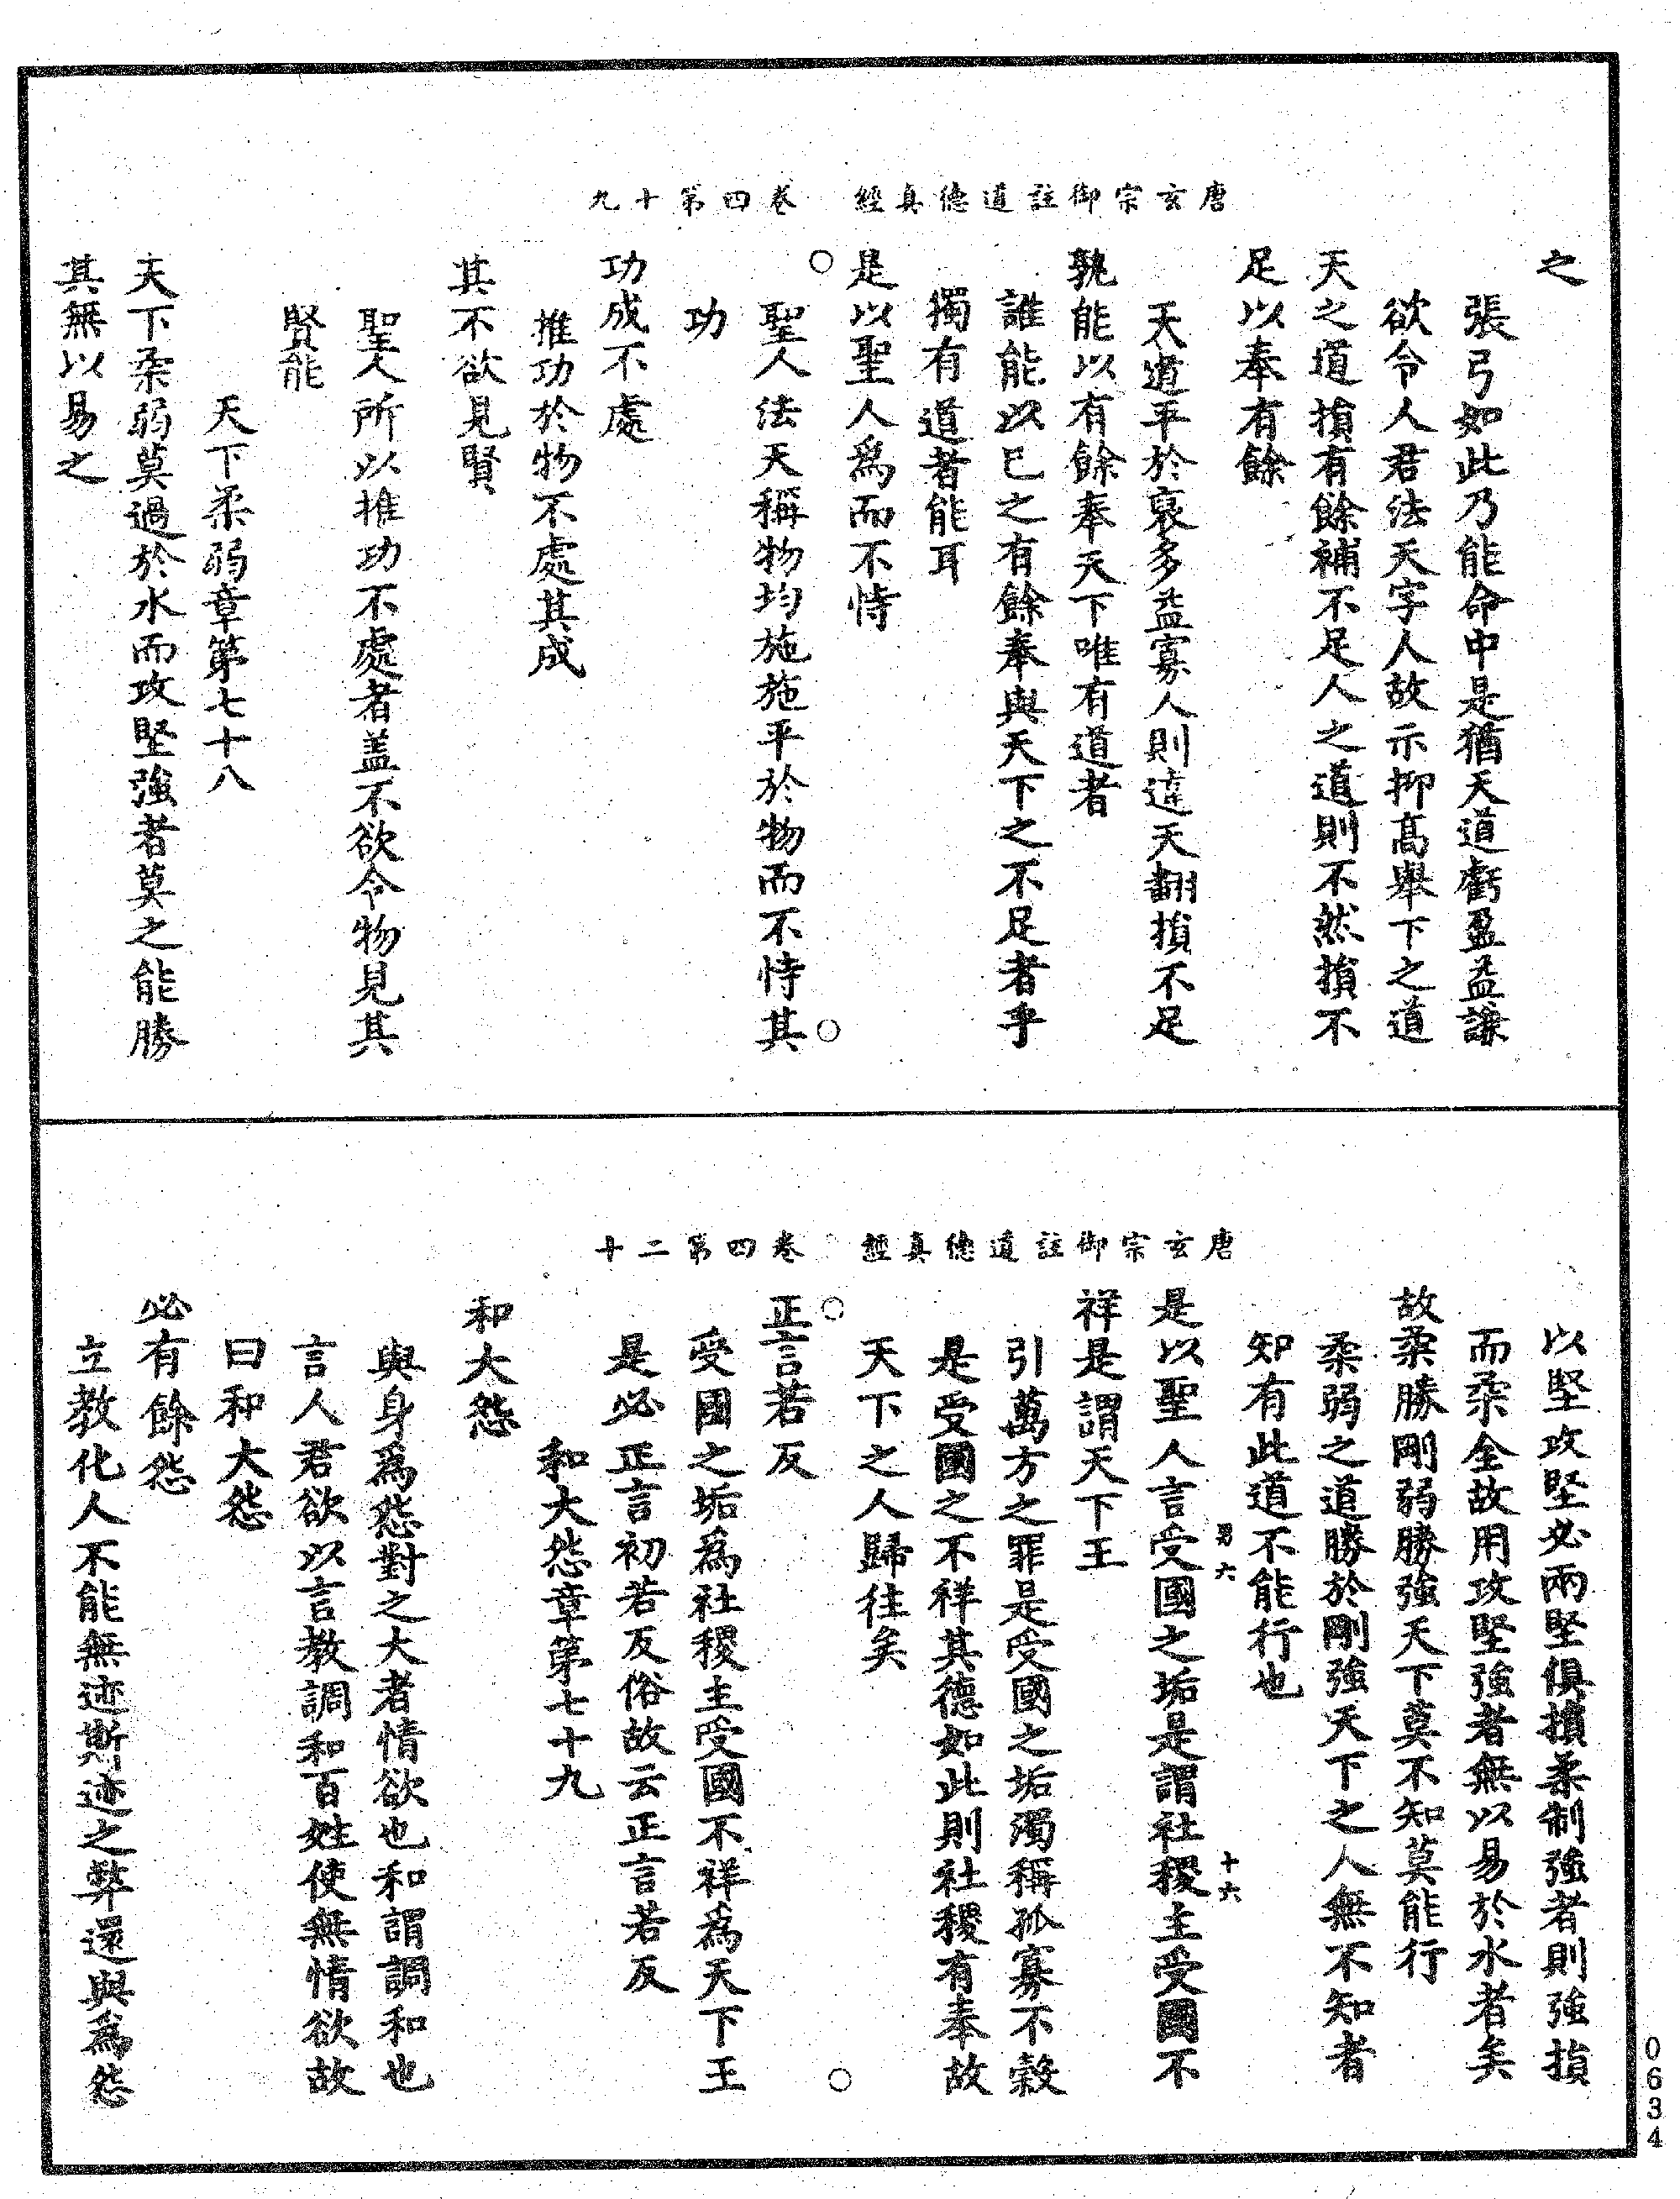 唐玄宗御註道德真經　卷四第十九
之
張弓如此乃能命中是猶天道虧盈益謙
欲令人君法天字人故示抑高舉下之道
天之道損有餘補不足人之道則不然損不
足以奉有餘
天道平於裒多益寡人則違天翻損不足
孰能以有餘奉天下唯有道者
誰能以已之有餘奉與天下之不足者乎
獨有道者能耳
是以聖人爲而不恃
○　○
聖人法天稱物均施施平於物而不恃其
功
功成不處
推功於物不處其成
其不欲見賢
聖人所以推功不處者盖不欲令物見其
賢能
天下柔弱章第七十八
天下柔弱莫過於水而攻堅強者莫之能勝
其無以易之
唐玄宗御註道德真經　卷四第二十
以堅攻堅必兩堅俱損柔制強者則強損
而柔全故用攻堅強者無以易於水者矣
故柔勝剛弱勝強天下莫不知莫能行
柔弱之道勝於剛強天下之人無不知者
知有此道不能行也
男六　十六
是以聖人言受國之垢是謂社稷主受國不
祥是謂天下王
引萬方之罪是受國之垢濁稱孤寡不穀
是受國之不祥其德如此則社稷有奉故
天下之人歸往矣
○　○
正言若反
受國之垢爲社稷主受國不祥爲天下王
是必正言初若反俗故云正言若反
和大怨章第七十九
和大怨
與身爲怨對之大者情欲也和謂調和也
言人君欲以言教調和百姓使無情欲故
曰和大怨
必有餘怨
立教化人不能無迹斯迹之弊還與爲怨
0634